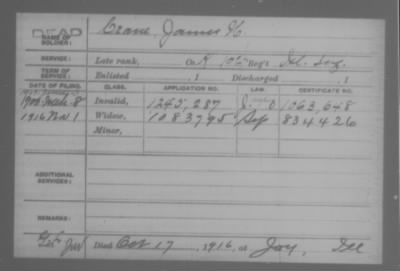 DEAD
NAME OF SOLDIER: Crane, James
SERVICE: Late rank, Co. K, 106" Reg't Ill. Inf.
TERM OF SERVICE: Enlisted , 1 Discharged , 1
DATE OF FILING. CLASS. APPLICATION NO. LAW. CERTIFICATE NO.
1900 8 Invalid, 1245,287 1063,648
1916 Nov 1 Widow, 1083795 Sep 834426
Minor,
ADDITIONAL SERVICES:
REMARKS:
Died Oct 17, 1916, at Joy, Ill